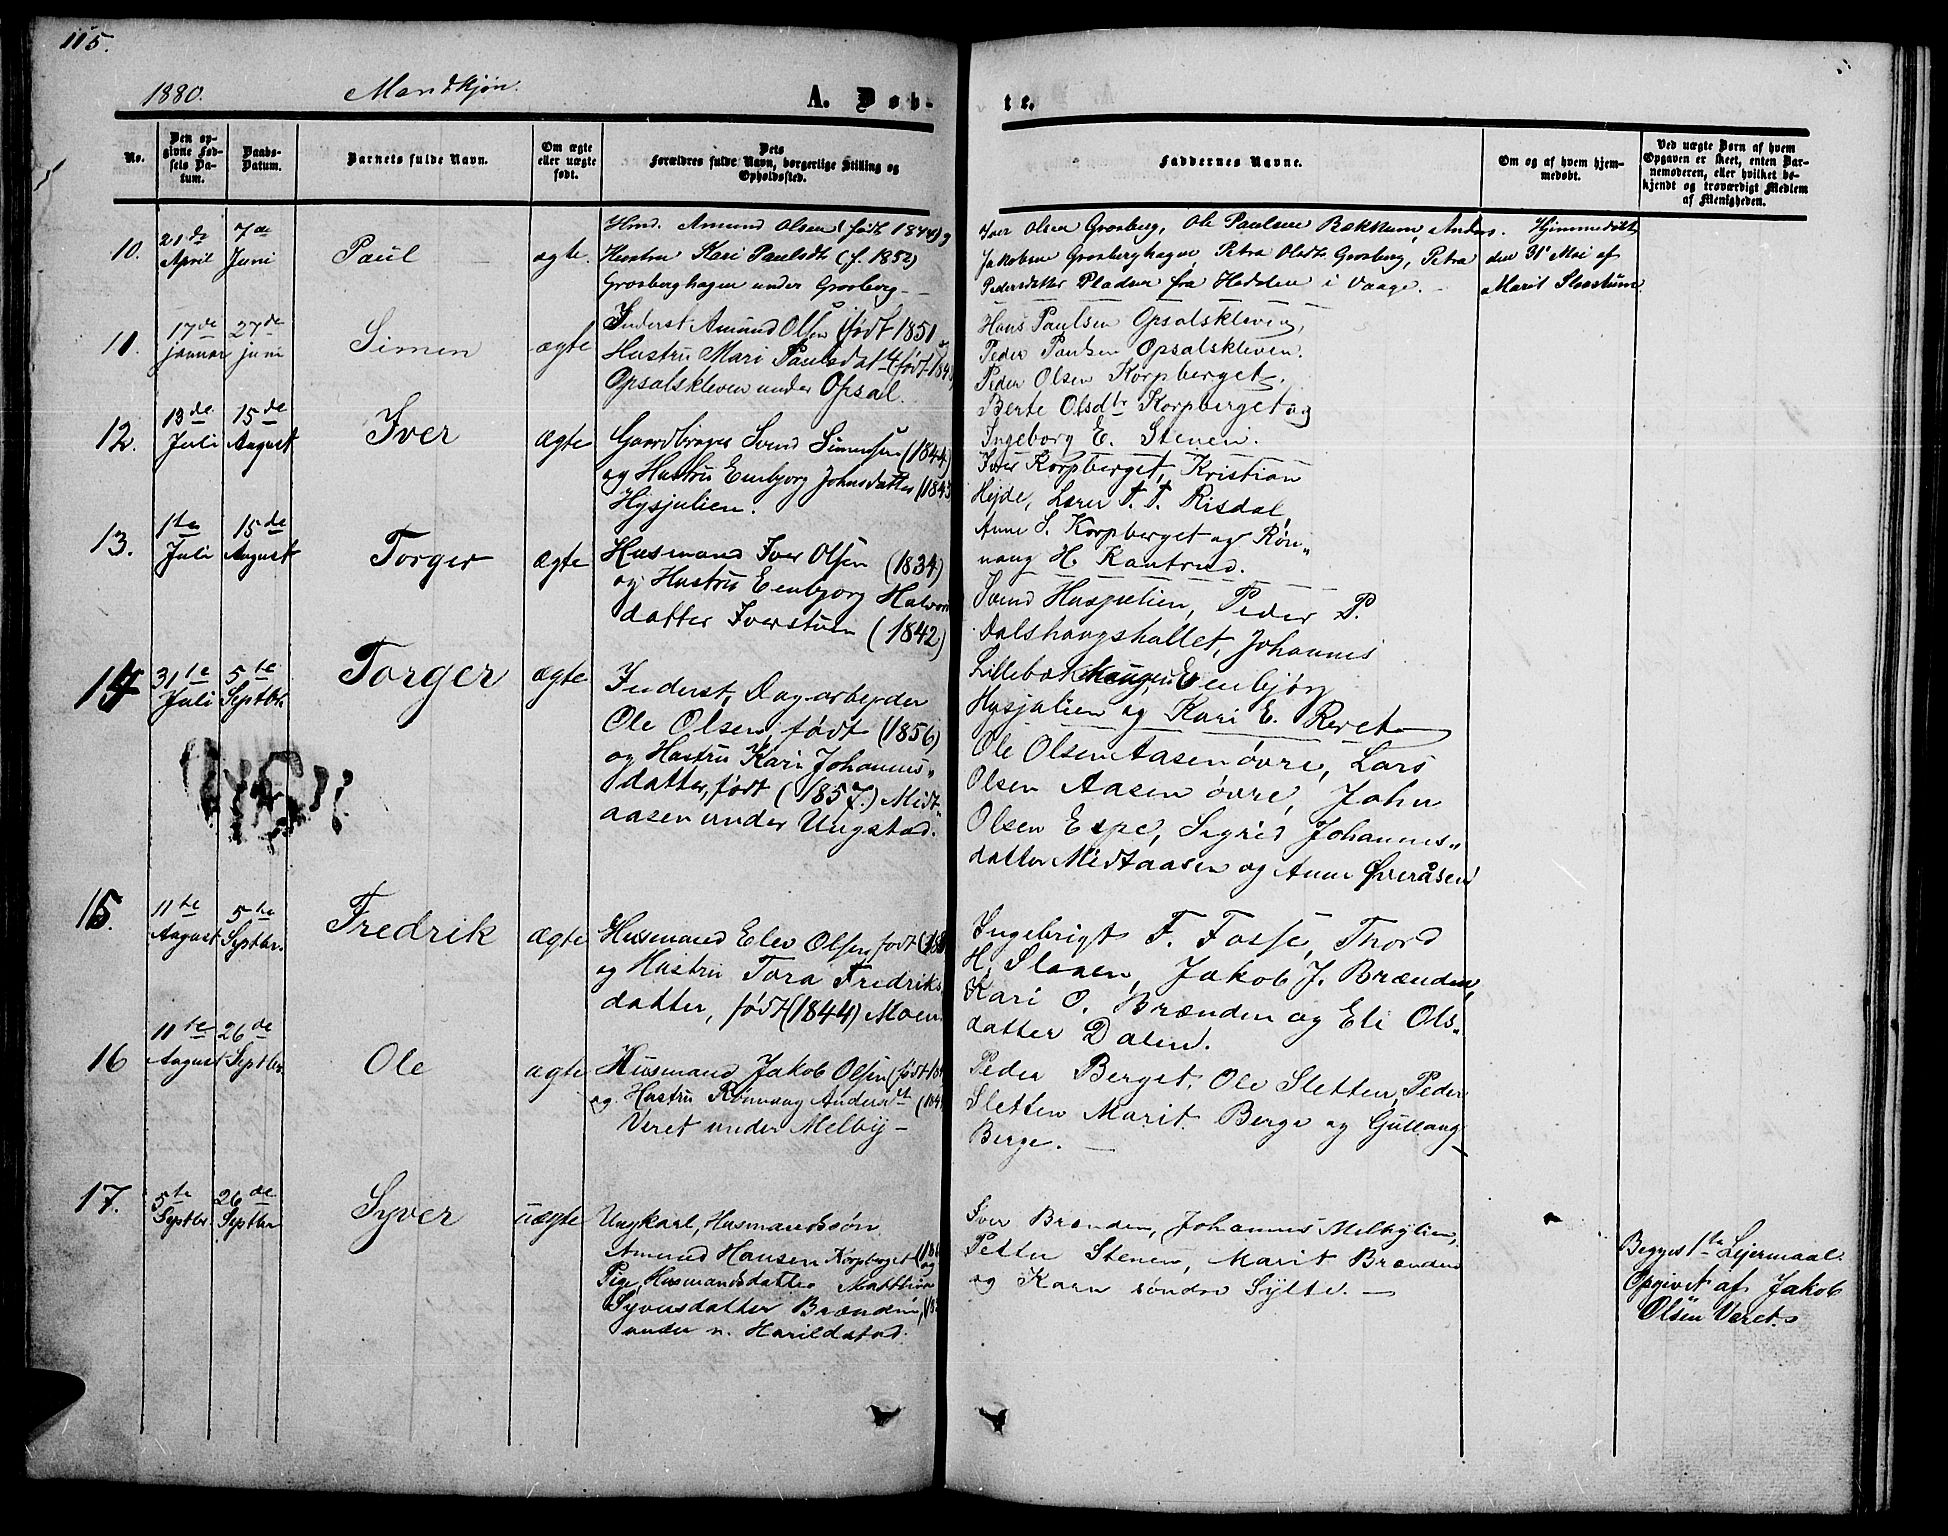 115.
1880. Mandkjøn.
A. Døb-
te.
No.
Den op-
givne Fød-
sels Da-
tum.
Daabs-
Datum.
Barnets fulde Navn.
Om ægte
eller uægte
født.
Dets
Forældres fulde Navn, borgerlige Stilling og
Opholdssted.
Faddernes Navne.
Om og af hvem hjem-
medøbt.
Ved uægte Børn af hvem
Opgaven er skeet, enten Bar-
nemoderen, eller hvilket be-
kjendt og troværdigt Medlem
af Menigheden.
10.
21de
April
7de
Juni
Paul
ægte.
Hmd. Amund Olsen (født 1844) og
Hustru Kari Paulsdt. (f. 1852)
Grosberghagen under Grosberg.—
Iver Olsen Grosberg, Ole Paulsen Bakkum, Anders
Jakobsen Grosberghagen, Petra Olsdt. Grosberg, Petra
Pedersdatter Pladsen fra Hedden i Vaage.—
Hjemmedöbt
den 31' Mai af
Marit Slostum.
11.
17de
januar
27de
juni
Simen
ægte
Inderst Amund Olsen (født 1851
Hustru Mari Paulsdatt (født 184
Opsalskleven under Opsal.
Hans Paulsen Opsalskleven,
Peder Paulsen Opsalskleven.
Peder Olsen Korpberget.
Berte Olsdtr Korpberget og
Ingeborg E. Stenen.
12.
13de
Juli
15de
August
Iver
ægte
Gaardbruger Svend Simensen (1844)
og Hustru Embjorg Johnsdatter (1843
Hysjulien.
Iver Korpberget, Kristian
Hejde, Lærer T. T. Risdal,
Anne S. Korpberget og Røn-
naug H. Rantrud.
13.
1te
Juli
15de
August
Torger
ægte
Husmand Iver Olsen (1834)
og Hustru Embjorg Halvors
datter Iverstuen (1842)
Svend Husjulien, Peder P.
Dalshaugshallet, Johannes
Lillebækhaugen, Embjørg
Hysjulien og Kari E. Røret
14
31te
Juli
5te
Septbr.
Torger
ægte
Inderst, Dagarbeyder
Ole Olsen, født (1856)
og Hustru Kari Johannes-
datter, født (1857.) Midt-
aasen under Ungstad.
Ole Olsen Aasen øvre, Lars
Olsen Aasen øvre, John
Olsen Espe, Sigrid Johannes-
datter Midtaasen og Anne Øveråsen
15.
11te
August
5te
Septbr.
Fredrik
ægte
Husmand Elev Olsen, født (18
og Hustru Tora Fredriks
datter, født (1844) Moen
Ingebrigt F. Fosse, Thord
H. Slaaen, Jakob J. Brænden,
Kari O. Brænden og Eli Ols-
datter Dalen.
16
11te
August
26de
Septbr.
Ole
ægte
Husmand Jakob Olsen (født 18
og Hustru Rønnaug Andersdt (184
Veret under Melby—
Peder Berget, Ole Sletten, Peder
Sletten Marit Berge og Gullaug
Berge.—
17.
5te
Septbr.
26de
Septbr
Syver
uægte
Ungkarl, Husmandssøn
Amund Hansen Korpberget (186
og
Pige, Husmandsdatter Matthia
Syversdatter Brænden, (18
under n. Harildstad.
Iver Brænden, Johannes Melbylien,
Petter Stenen, Marit Brænden
og Karn søndre Sylte.—
Begges 1te Lejermaal.
Opgivet af Jakob
Olsen Veret.